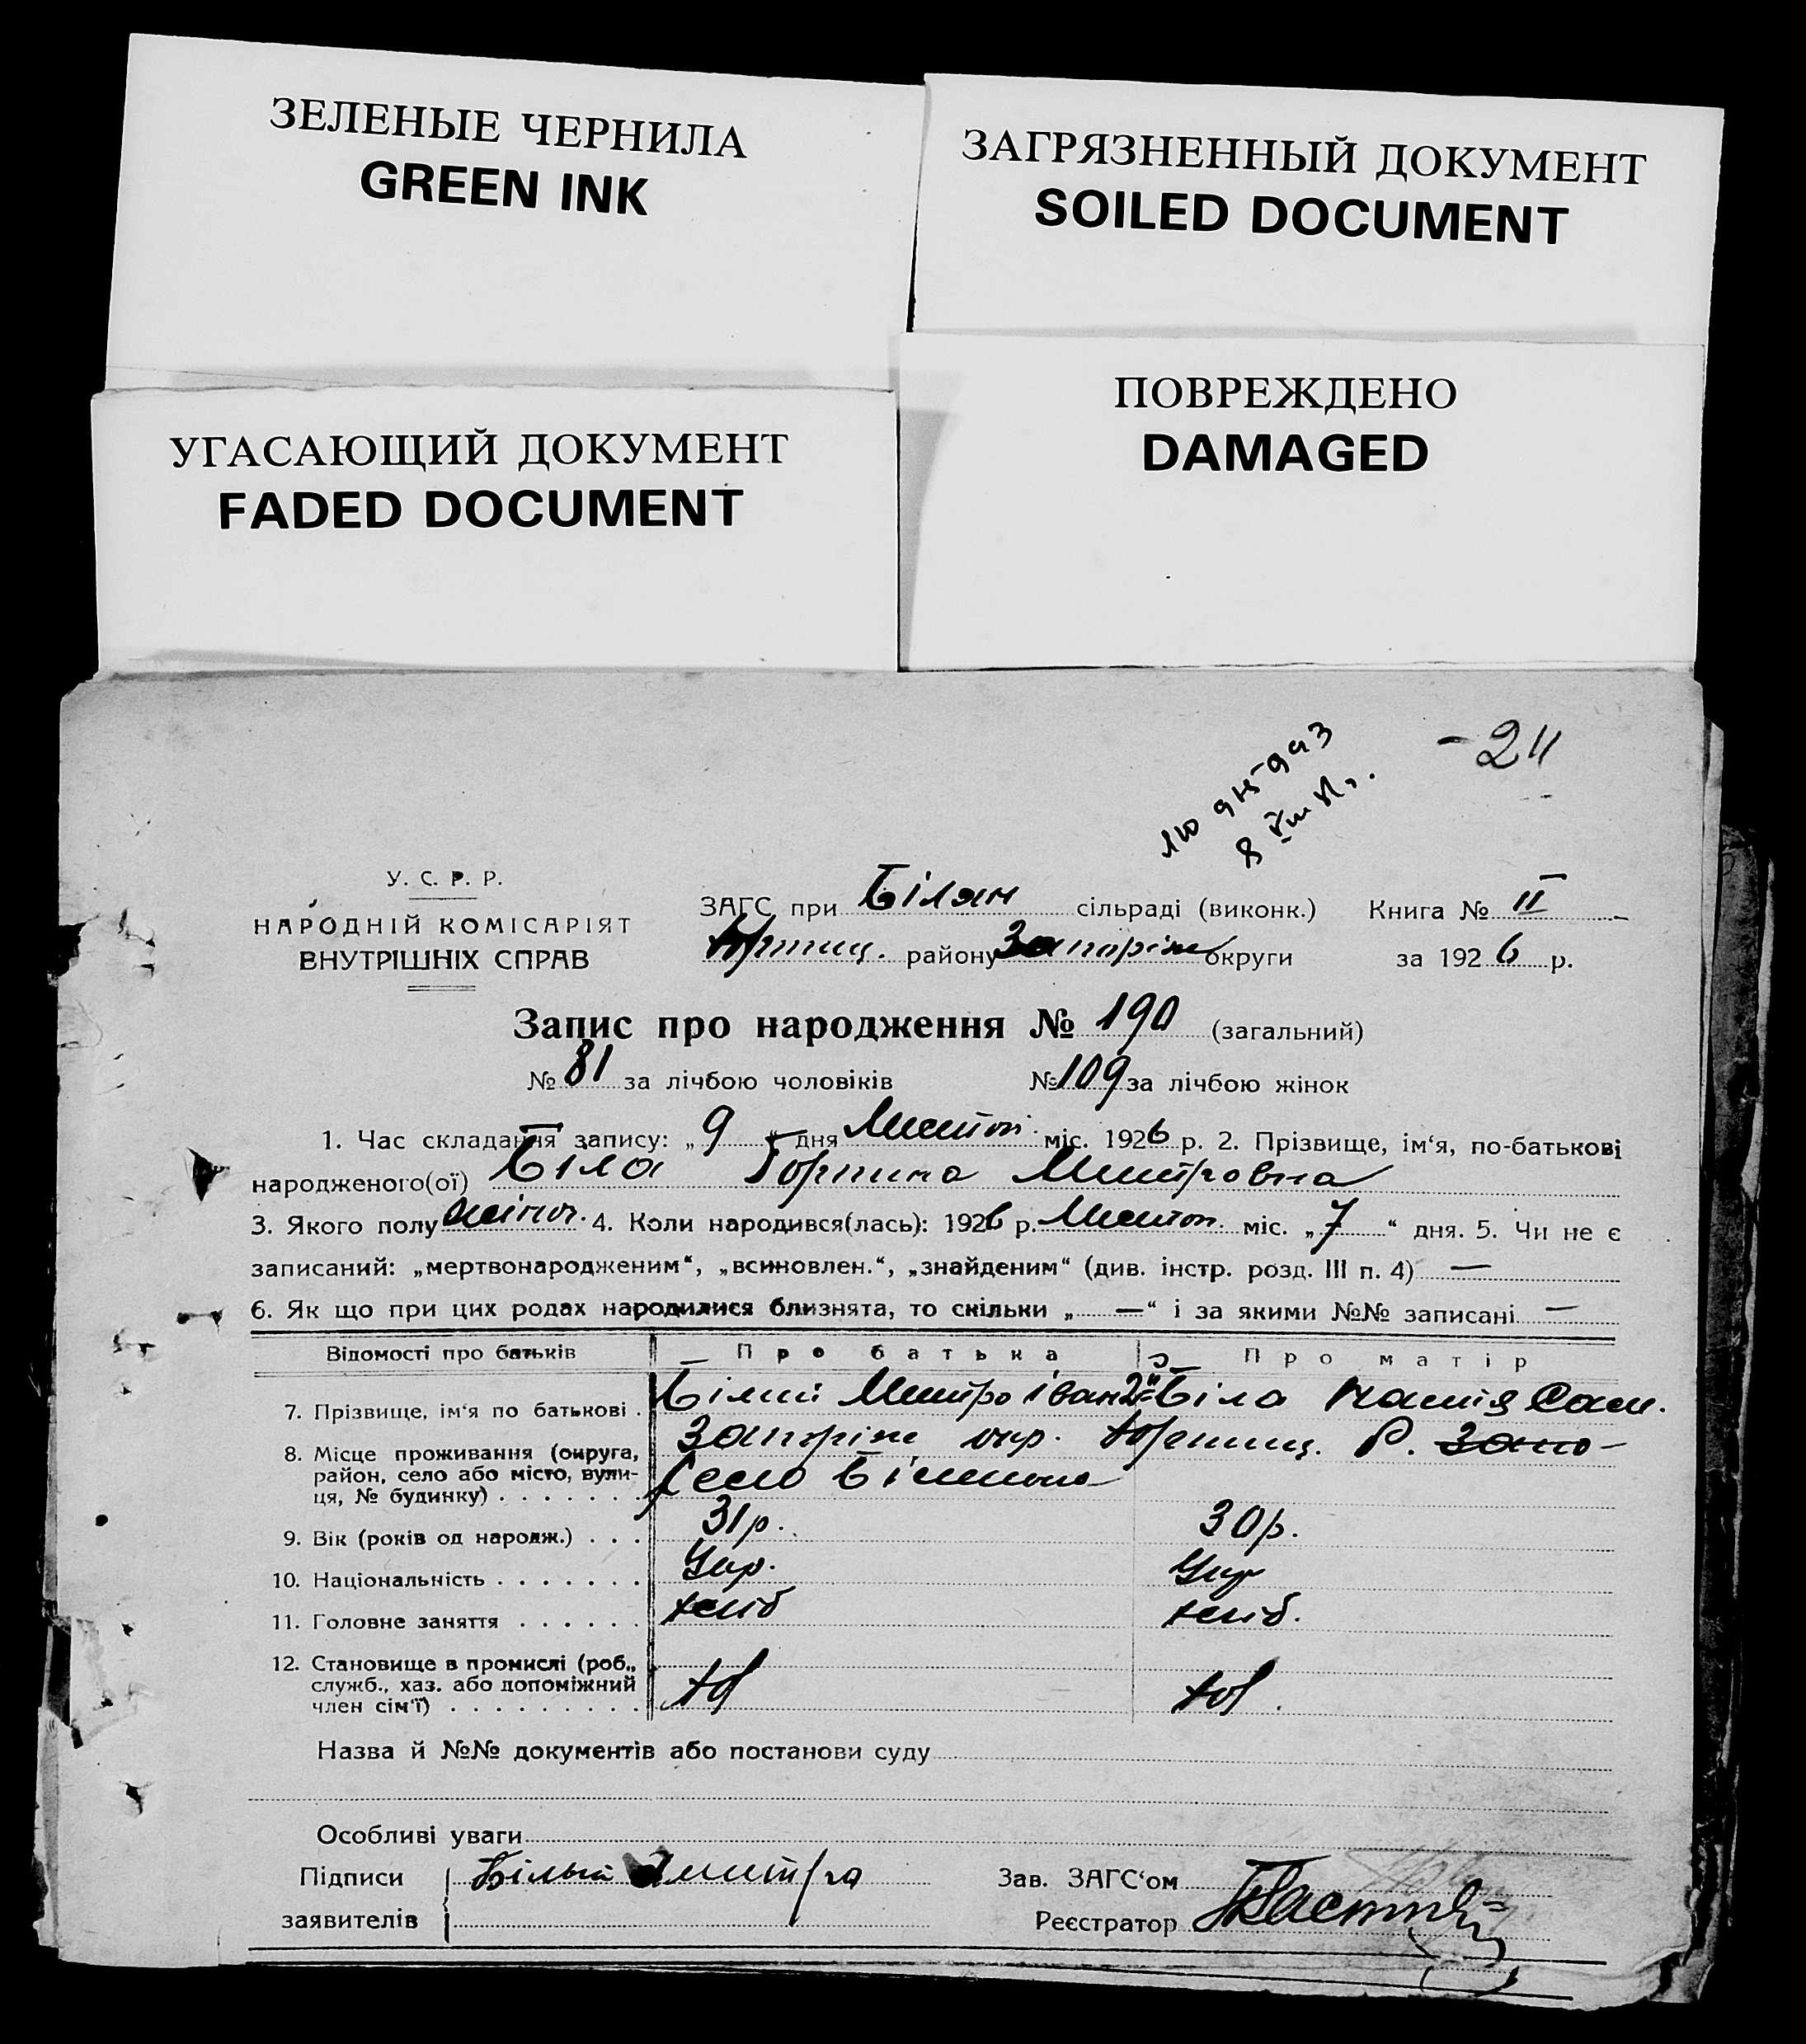 ЗЕЛЕНЫЕ ЧЕРНИЛА
GREEN INK
ЗАГРЯЗНЕННЫЙ ДОКУМЕНТ
SOILED DOCUMENT
УГАСАЮЩИЙ ДОКУМЕНТ
FADED DOCUMENT
ПОВРЕЖДЕНО
DAMAGED
У. С. Р. Р.
НАРОДНІЙ КОМІСАРІЯТ
ВНУТРІШНІХ СПРАВ
ЗАГС при Білян сільраді (виконк.) Книга № II
району Запоріж округи за 1926 р.
Запис про народження № 190 (загальний)
№ 81 за лічбою чоловіків № 109 за лічбою жінок
1. Час складання запису: „9“ дня міс. 1926 р. 2. Прізвище, ім‘я, по-батькові
народженого(ої) Біла Митровна
3. Якого полу жіноч. 4. Коли народився(лась): 1926 р. міс. „7“ дня. 5. Чи не є
записаний: „мертвонародженим“, „всиновлен.“, „знайденим“ (див. інстр. розд. III п. 4) —
6. Як що при цих родах народилися близнята, то скільки „—“ і за якими №№ записані —
Відомості про батьків Про батька Про матір
7. Прізвище, ім‘я по батькові . Білий Митро Іван Біла
8. Місце проживання (округа, Запоріж окр. Р.
район, село або місто, вули- Село
ця, № будинку) . . . . . . .
9. Вік (років од народж.) . . . 31 р. 30 р.
10. Національність . . . . . . . Укр. Укр
11. Головне заняття . . . . . . хліб хліб.
12. Становище в промислі (роб.,
служб., хаз. або допоміжний
член сім‘ї) . . . . . . . . .
Назва й №№ документів або постанови суду
Особливі уваги
Підписи Білый Зав. ЗАГС‘ом
заявителів Реєстратор